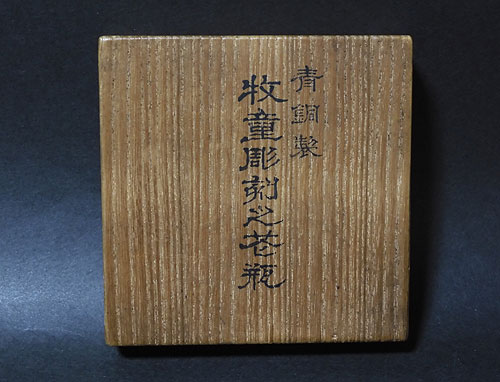 青銅製
牧童彫刻之花瓶